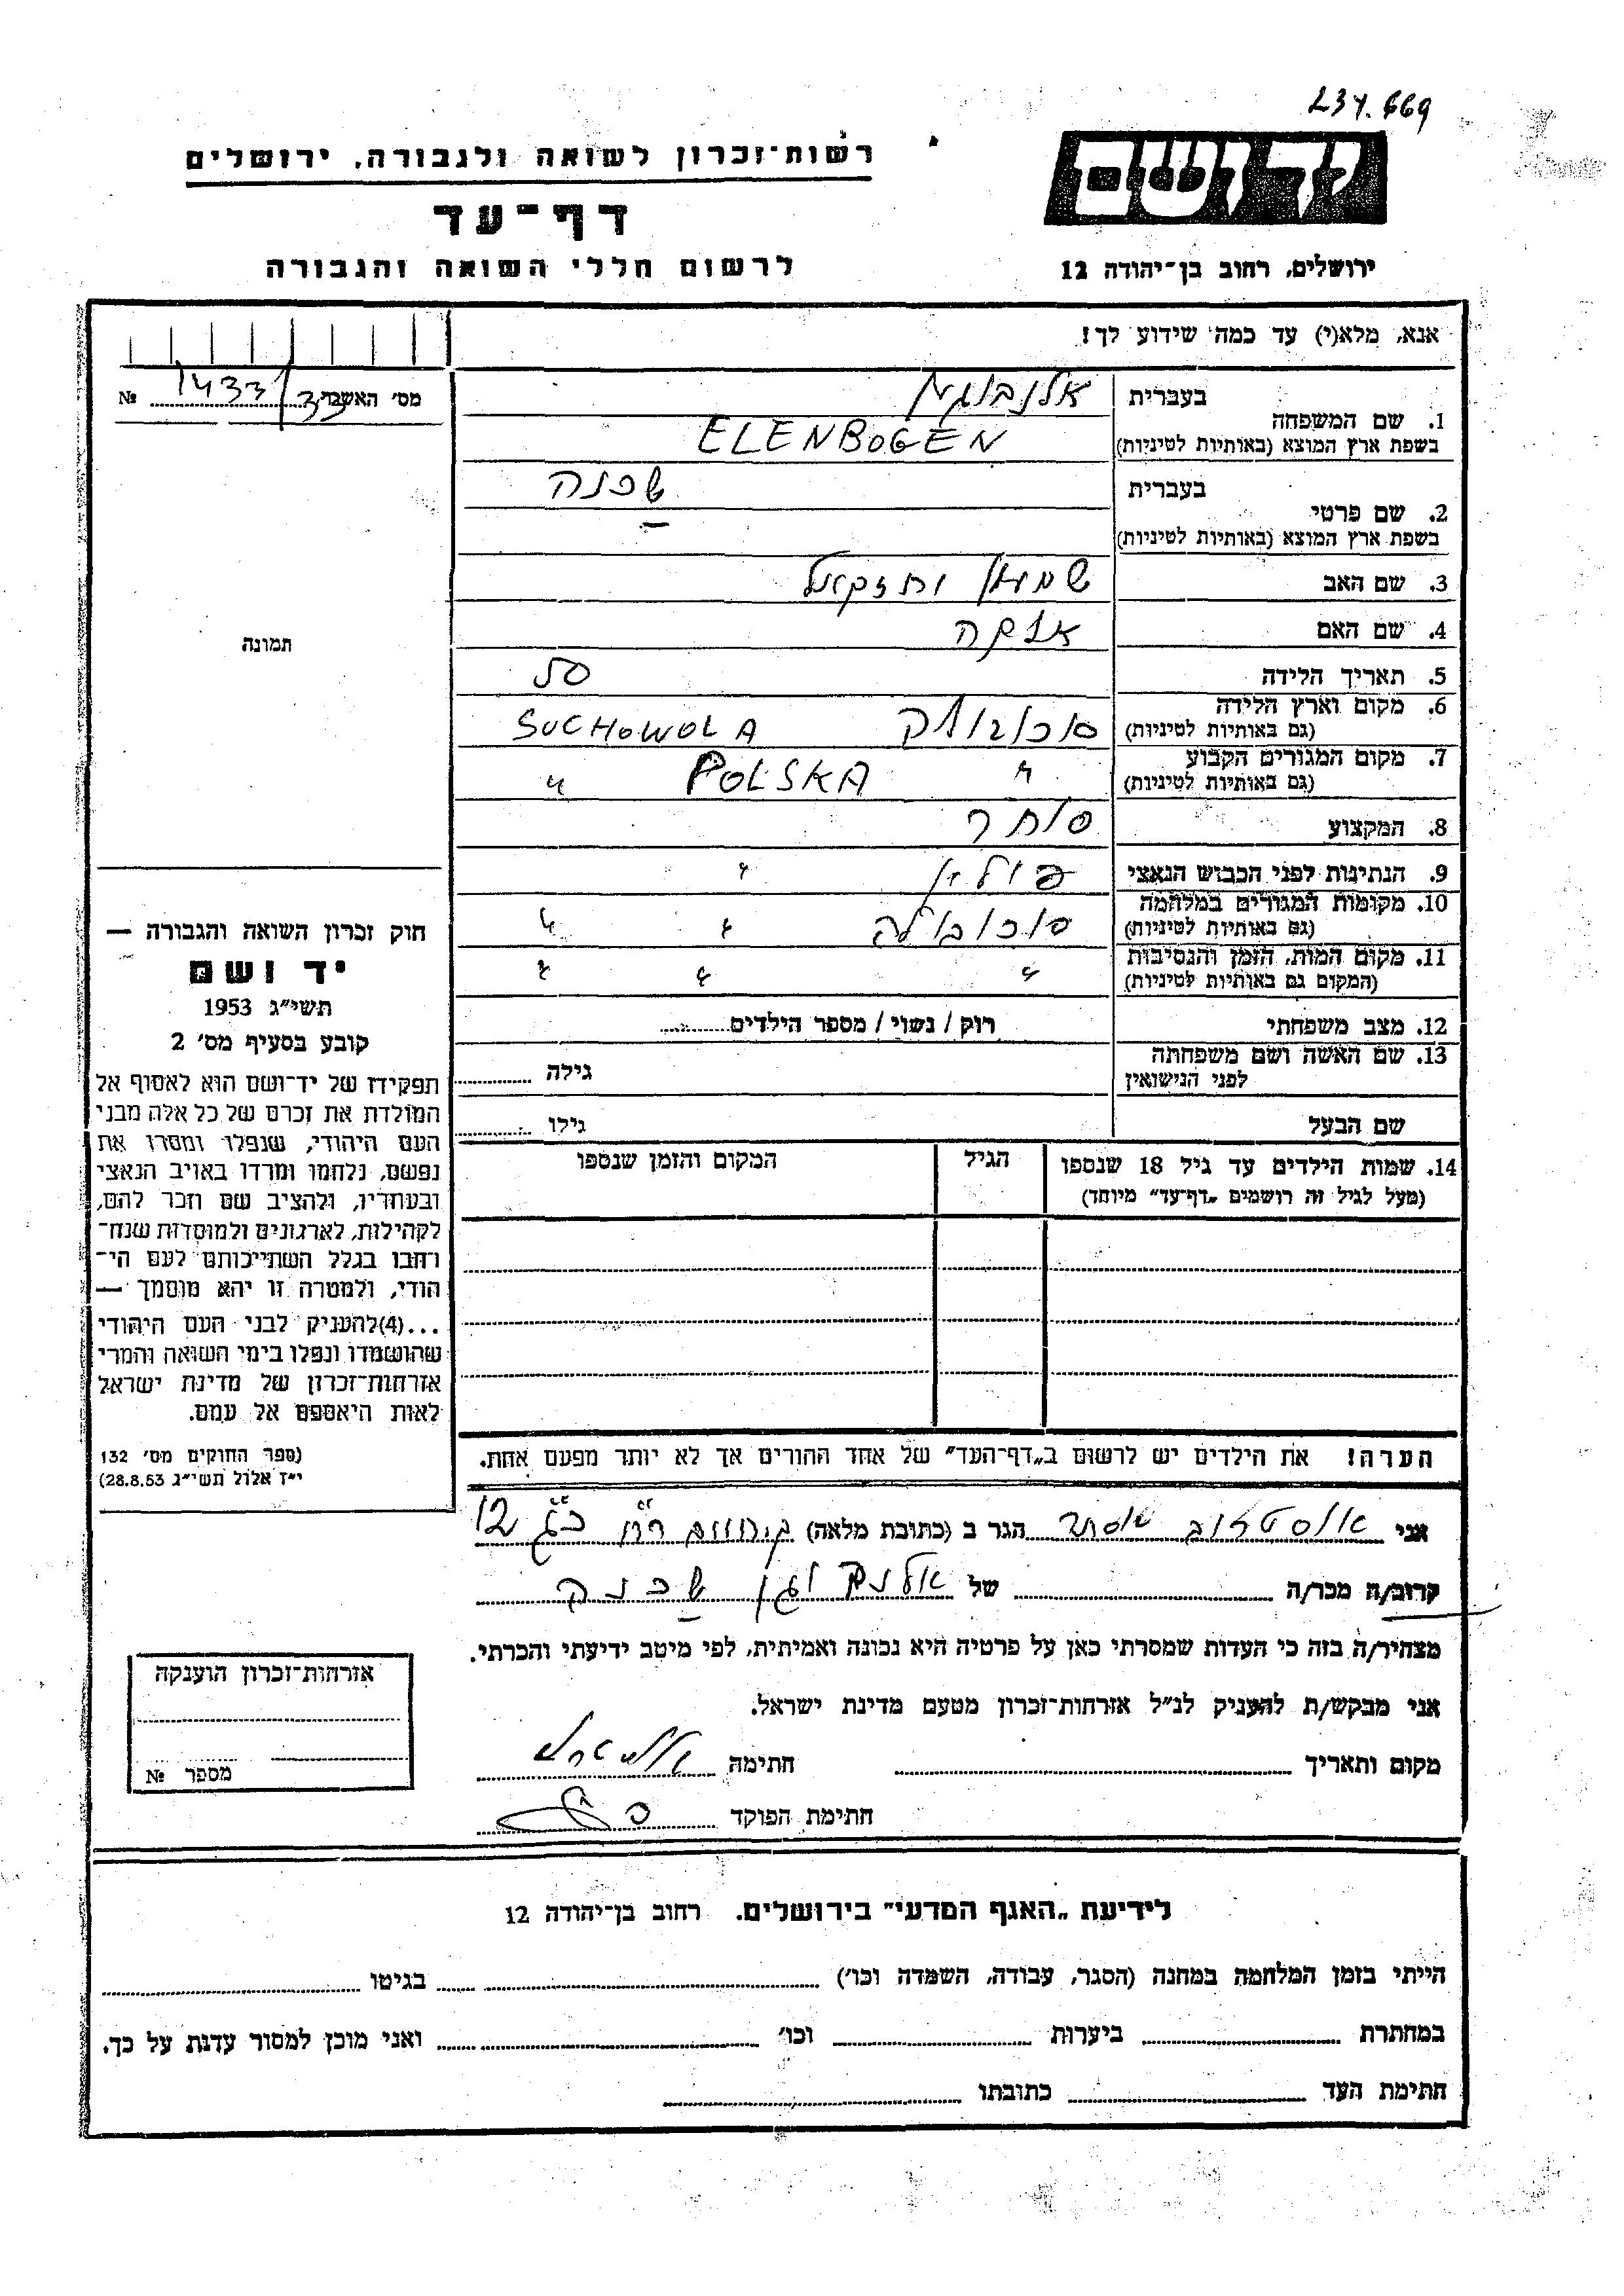 234.669
רשות-זכרון לשואה ולגבורה, ירושלים
יד ושם
דף-עד
לרשום חללי השואה והגבורה
ירושלים, רחוב בן-יהודה 12
אנא, מלא(י) עד כמה שידוע לך!
מס׳ האשבי 1433/33 №
1. שם המשפחה בעברית אלנבוגן
בשפת ארץ המוצא (באותיות לטיניות) ELENBOGEN
2. שם פרטי בעברית שכנה
בשפת ארץ המוצא (באותיות לטיניות) —
3. שם האב שמעון יחזקאל
4. שם האם
5. תאריך הלידה 50
6. מקום וארץ הלידה (גם באותיות לטיניות) SUCHOWOLA
7. מקום המגורים הקבוע (גם באותיות לטיניות) " POLSKA "
8. המקצוע סוחר
9. הנתינות לפני הכבוש הנאצי פולין "
10. מקומות המגורים במלחמה (גם באותיות לטיניות) סוכובולה " "
11. מקום המות, הזמן והנסיבות (המקום גם באותיות לטיניות) " " "
12. מצב משפחתי רוק / נשוי / מספר הילדים
13. שם האשה ושם משפחתה לפני הנישואין גילה
שם הבעל גילו
14. שמות הילדים עד גיל 18 שנספו
(מעל לגיל זה רושמים „דף-עד" מיוחד)
הגיל
המקום והזמן שנספו
הערה! את הילדים יש לרשום ב„דף-העד" של אחד ההורים אך לא יותר מפעם אחת.
תמונה
חוק זכרון השואה והגבורה —
יד ושם
תשי״ג 1953
קובע בסעיף מס׳ 2
תפקידו של יד-ושם הוא לאסוף אל
המולדת את זכרם של כל אלה מבני
העם היהודי, שנפלו ומסרו את
נפשם, נלחמו ומרדו באויב הנאצי
ובעוזריו, ולהציב שם וזכר להם,
לקהילות, לארגונים ולמוסדות שנח-
רבו בגלל השתייכותם לעם הי-
הודי, ולמטרה זו יהא מוסמך —
...(4)להעניק לבני העם היהודי
שהושמדו ונפלו בימי השואה והמרי
אזרחות-זכרון של מדינת ישראל
לאות היאספם אל עמם.
(ספר החוקים מס׳ 132
י״ז אלול תשי״ג 28.8.53)
אני הגר ב (כתובת מלאה) 12
קרוב/ה מכר/ה של אלנבוגן שכנה
מצהיר/ה בזה כי העדות שמסרתי כאן על פרטיה היא נכונה ואמיתית, לפי מיטב ידיעתי והכרתי.
אני מבקש/ת להעניק לנ״ל אזרחות-זכרון מטעם מדינת ישראל.
מקום ותאריך חתימה
חתימת הפוקד
אזרחות-זכרון הוענקה
מספר №
לידיעת „האגף המדעי" בירושלים. רחוב בן-יהודה 12
הייתי בזמן המלחמה במחנה (הסגר, עבודה, השמדה וכו׳) בגיטו
במחתרת ביערות וכו׳ ואני מוכן למסור עדות על כך.
חתימת העד כתובתו